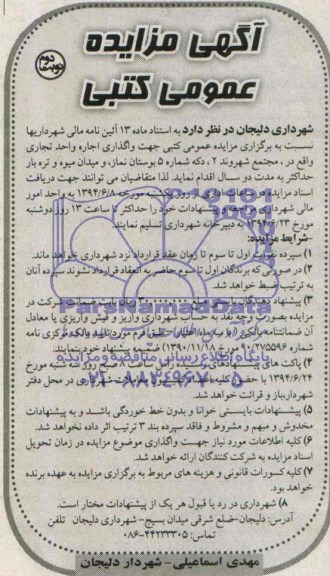 آگهی مزایده
عمومی کتبی
نوبت دوم
شهرداری دلیجان در نظر دارد به استناد ماده ۱۳ آئین نامه مالی شهرداریها
نسبت به برگزاری مزایده عمومی کتبی جهت واگذاری اجاره واحد تجاری
واقع در ، مجتمع شهروند ۲ ، دکه شماره ۵ بوستان نماز، و میدان میوه و تره بار
حداکثر به مدت دو سال اقدام نماید. لذا متقاضیان می توانند جهت دریافت
اسناد مزایده تا پایان وقت اداری روز یکشنبه مورخه ۱۳۹۴/۶/۸ به واحد امور
مالی شهرداری پیشنهادات خود را حداکثر تا ساعت ۱۳ روز دوشنبه
مورخ ۱۳۹۴/۶/۲۳ به دبیرخانه شهرداری تسلیم نمایند.
-شرایط مزایده:
۱) سپرده نفرات اول تا سوم تا زمان عقد قرارداد نزد شهرداری خواهد ماند.
۲) در صورتی که برندگان اول تا سوم حاضر به انعقاد قرارداد نشوند سپرده آنان
به ترتیب ضبط خواهد شد.
۳) پیشنهاد دهندگان بایست مبلغ ریال بابت ضمانت شرکت در
مزایده بصورت واریز وجه نقد به حساب شهرداری واریز و فیش واریزی یا معادل
آن ضمانتنامه بانکی (با سه ماه اعتبار) طبق فرم مورد تایید بانک مرکزی نامه
شماره مورخ ۱۳۹۰/۱۱/۸ ضمیمه پیشنهاد خود نمایند.
۴) پاکت های پیشنهادهای رسیده راس ساعت ۸ صبح روز سه شنبه مورخ
۱۳۹۴/۶/۲۴ با حضور کلیه اعضای کمیسیون معاملات شهرداری در محل دفتر
شهردار باز و قرائت خواهد شد.
۵) پیشنهادات بایستی خوانا و بدون خط خوردگی باشد و به پیشنهادات
مخدوش و مبهم و مشروط و فاقد سپرده بند ۳ ترتیب اثر داده نخواهد شد.
۶) کلیه اطلاعات مورد نیاز جهت واگذاری موضوع مزایده در زمان تحویل
اسناد مزایده به شرکت کنندگان ارائه خواهد شد.
۷) کلیه کسورات قانونی و هزینه های مربوط به برگزاری مزایده به عهده برنده
خواهد بود.
۸) شهرداری در رد یا قبول هر یک از پیشنهادات مختار است.
آدرس: دلیجان-ضلع شرقی میدان بسیج- شهرداری دلیجان تلفن
تماس: ۴۴۲۳۳۳۰۵-۰۸۶
مهدی اسماعیلی- شهردار دلیجان
ParsNamadData
پایگاه اطلاع رسانی مناقصه و مزایده
۰۲۱-۸۸۳۴۹۶۷۰-۵